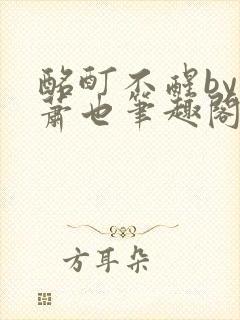 酩酊不醒by
萧也笔趣阁
方耳朵